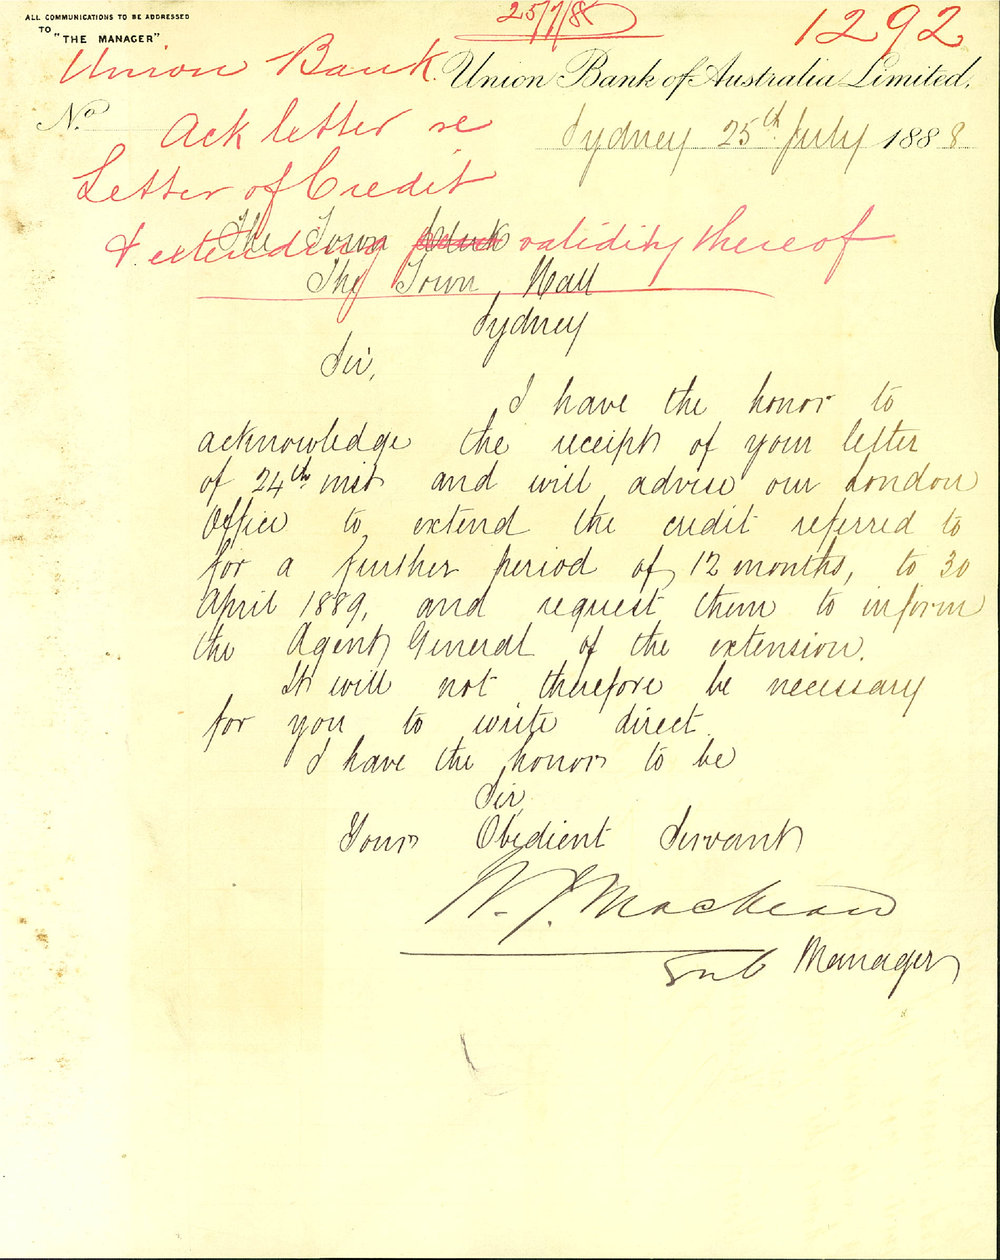 ALL COMMUNICATIONS TO BE ADDRESSED
TO "THE MANAGER"
25/7/88
1292
Union Bank
Union Bank of Australia Limited,
No.
Sydney 25th July 1888
Ack letter re
Letter of Credit
& extending validity thereof
The Town Clerk
The Town Hall
Sydney
Sir,
I have the honor to
acknowledge the receipt of your letter
of 24th inst and will advise our London
Office to extend the credit referred to
for a further period of 12 months, to 30
April 1889, and request them to inform
the Agent General of the extension.
It will not therefore be necessary
for you to write direct.
I have the honor to be
Sir,
Your Obedient Servant
Sub Manager